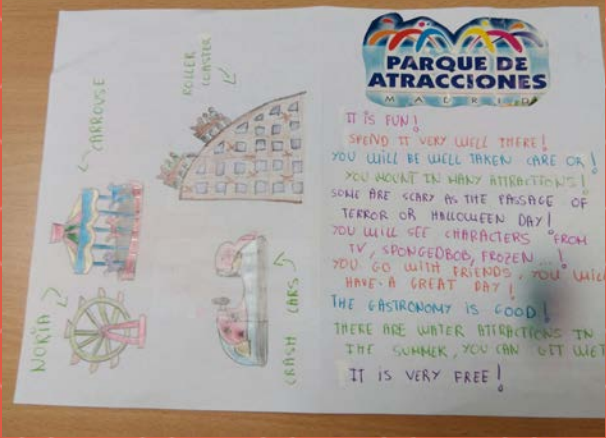 CARROUSE
ROLLER
COASTER
NORIA
CRASH CARS
PARQUE DE
ATRACCIONES
MADRID
IT IS FUN!
SPEND IT VERY WELL THERE!
YOU WILL BE WELL TAKEN CARE OR!
YOU MOUNT IN MANY ATTRACTIONS!
SOME ARE SCARY AS THE PASSAGE OF
TERROR OR HALLOWEEN DAY!
YOU WILL SEE CHARACTERS FROM
TV, SPONGEDBOB, FROZEN...!
YOU GO WITH FRIENDS, YOU WILL
HAVE A GREAT DAY!
THE GASTRONOMY IS GOOD!
THERE ARE WATER ATTRACTIONS IN
THE SUMMER, YOU CAN GET WET
IT IS VERY FREE!